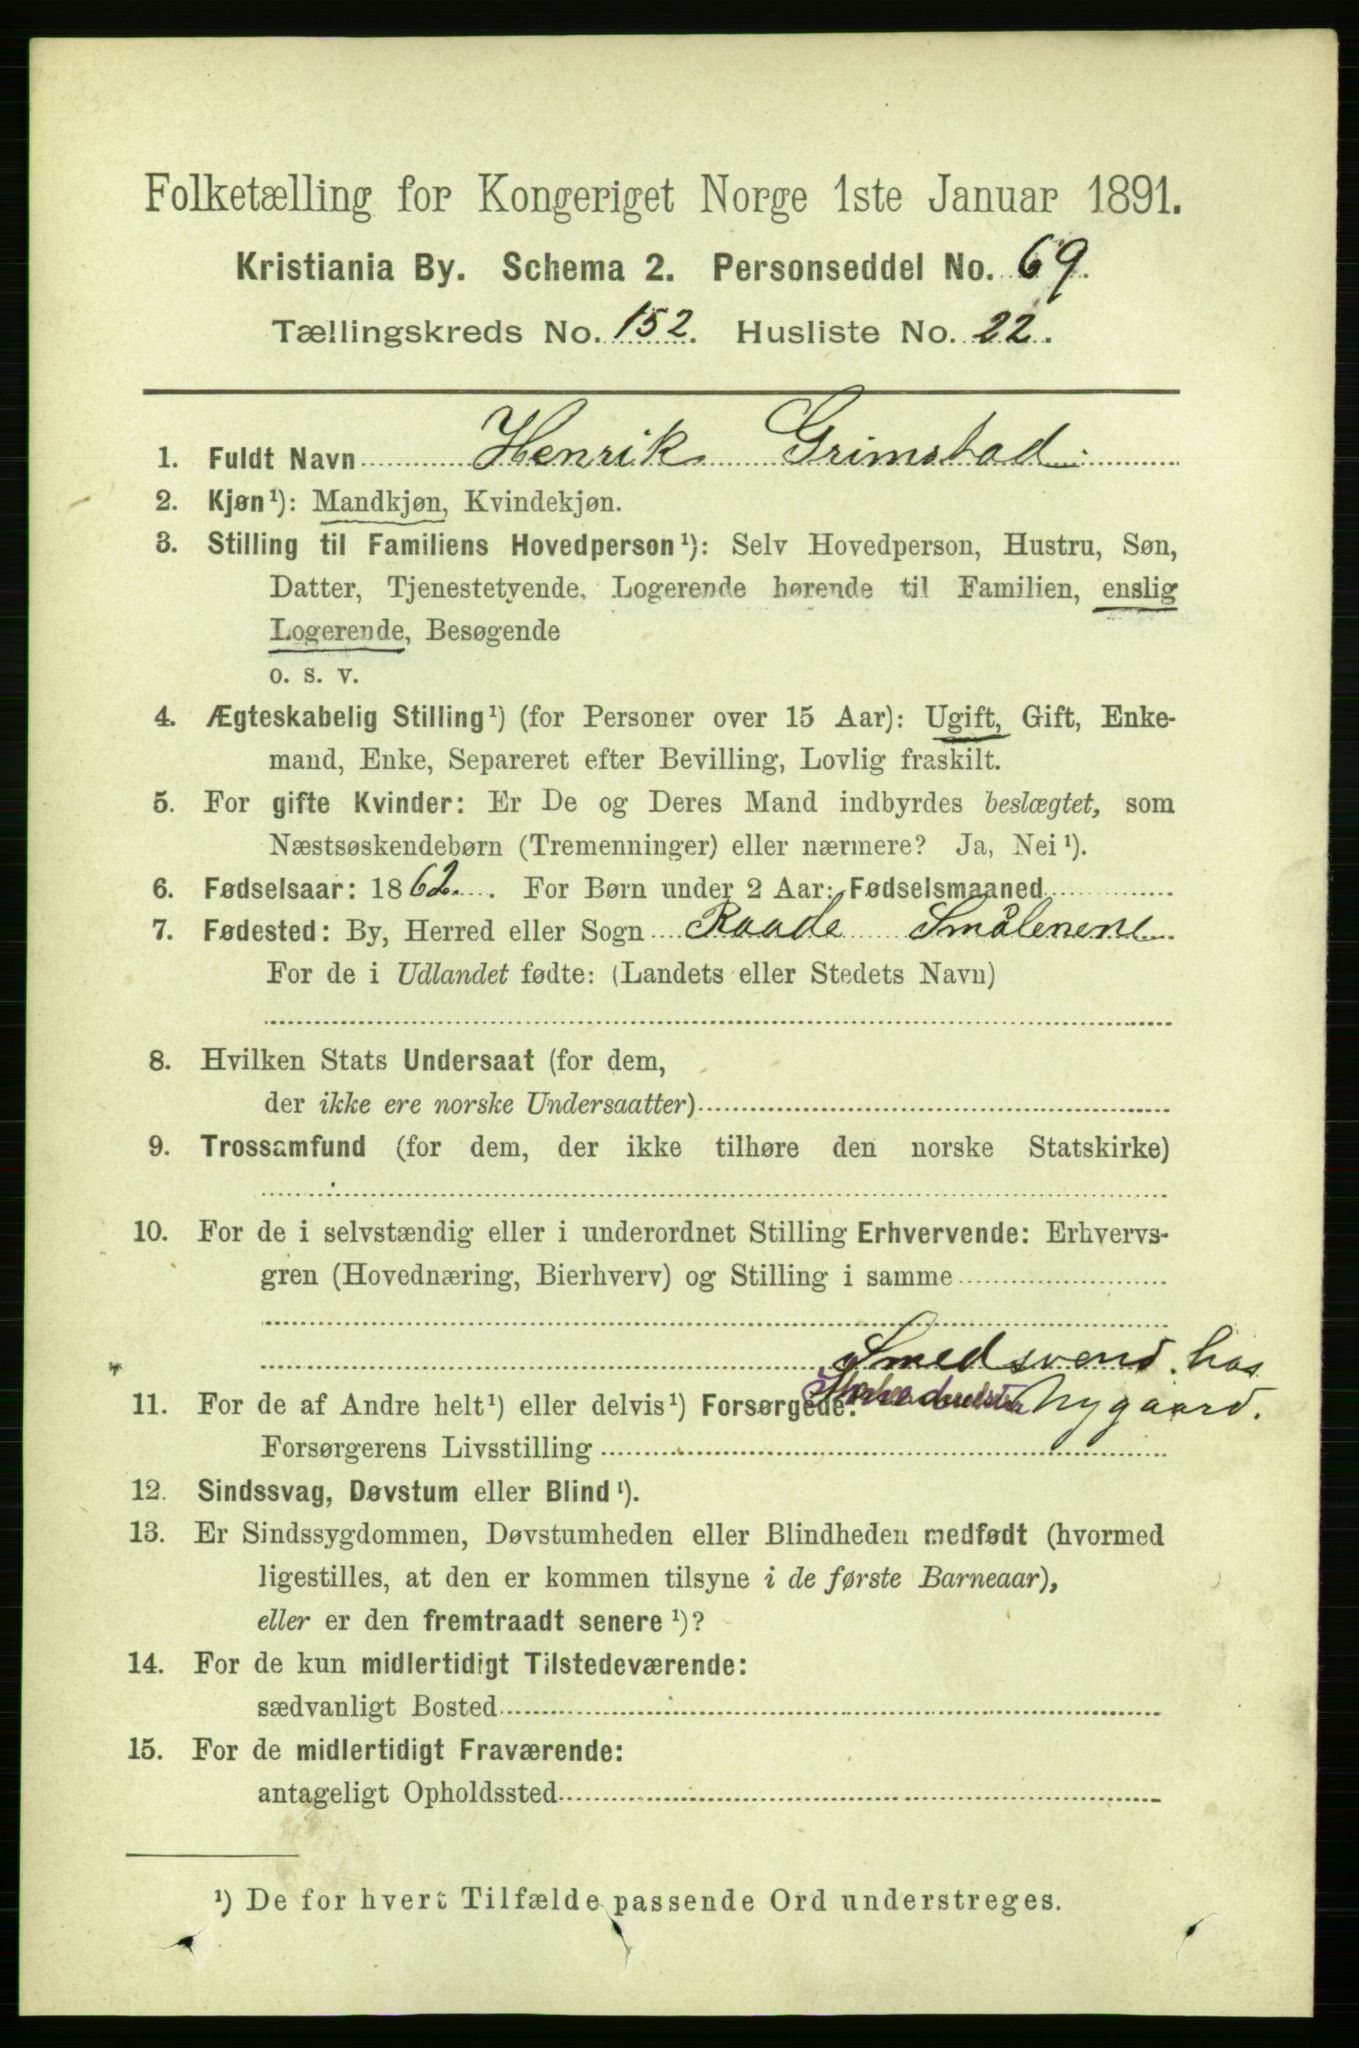 Folketælling for Kongeriget Norge 1ste Januar 1891.
Kristiania By. Schema 2. Personseddel No. 69.
Tællingskreds No. 152. Husliste No. 22.
1. Fuldt Navn Henrik Grimstad
2. Kjøn¹): Mandkjøn, Kvindekjøn.
3. Stilling til Familiens Hovedperson¹): Selv Hovedperson, Hustru, Søn,
Datter, Tjenestetyende, Logerende hørende til Familien, enslig
Logerende, Besøgende
o. s. v.
4. Ægteskabelig Stilling¹) (for Personer over 15 Aar): Ugift, Gift, Enke-
mand, Enke, Separeret efter Bevilling, Lovlig fraskilt.
5. For gifte Kvinder: Er De og Deres Mand indbyrdes beslægtet, som
Næstsøskendebørn (Tremenninger) eller nærmere? Ja, Nei¹).
6. Fødselsaar: 1862. For Børn under 2 Aar: Fødselsmaaned
7. Fødested: By, Herred eller Sogn Raade Smålenene
For de i Udlandet fødte: (Landets eller Stedets Navn)
8. Hvilken Stats Undersaat (for dem,
der ikke ere norske Undersaatter)
9. Trossamfund (for dem, der ikke tilhøre den norske Statskirke)
10. For de i selvstændig eller i underordnet Stilling Erhvervende: Erhvervs-
gren (Hovednæring, Bierhverv) og Stilling i samme
Smedsvend. hos
11. For de af Andre helt¹) eller delvis¹) Forsørgede: Nygaard.
Forsørgerens Livsstilling
12. Sindssvag, Døvstum eller Blind¹).
13. Er Sindssygdommen, Døvstumheden eller Blindheden medfødt (hvormed
ligestilles, at den er kommen tilsyne i de første Barneaar),
eller er den fremtraadt senere¹)?
14. For de kun midlertidigt Tilstedeværende:
sædvanligt Bosted
15. For de midlertidigt Fraværende:
antageligt Opholdssted
¹) De for hvert Tilfælde passende Ord understreges.